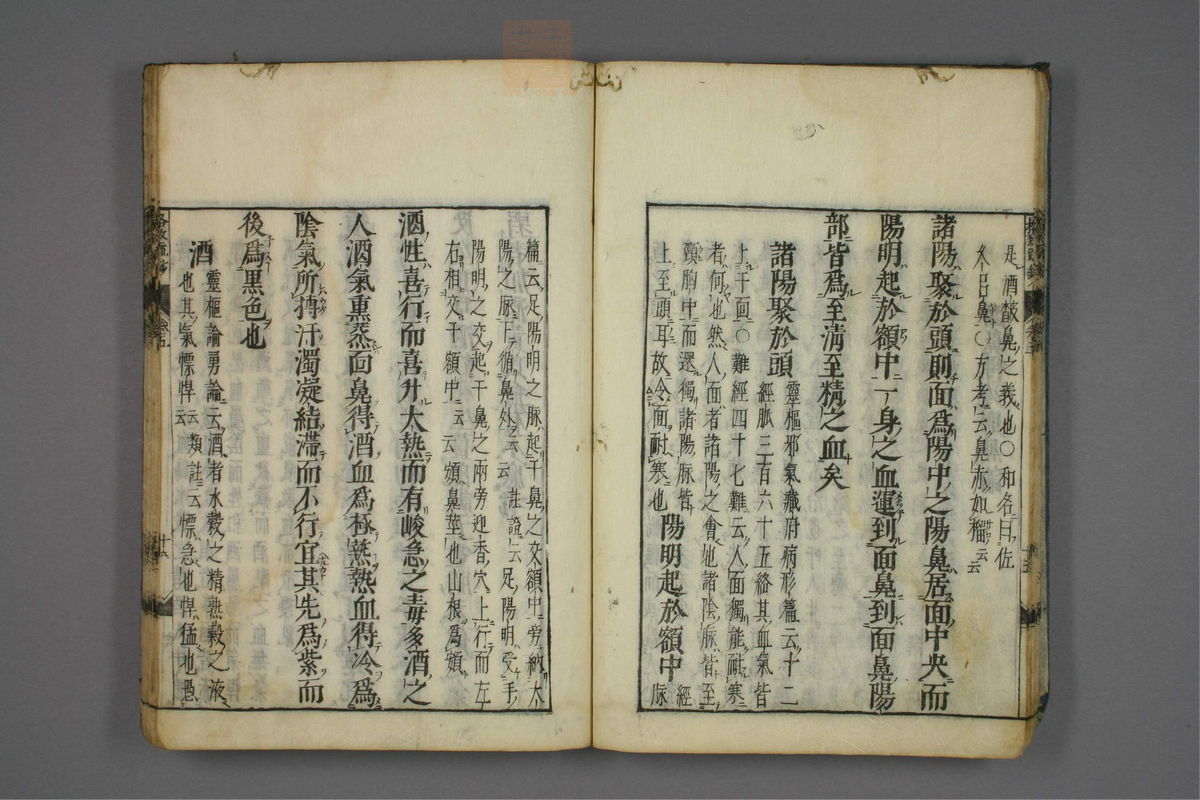 是酒皶鼻之義也○和名曰佐
久日鼻○方考云鼻赤如榴云云
諸陽聚於頭則面爲陽中之陽鼻居面中央而
陽明起於頞中一身之血運到面鼻到面鼻陽
部皆爲至清至精之血矣
諸陽聚於頭
靈樞邪氣藏府病形篇云十二
經脉三百六十五絡其血氣皆
上于面○難經四十七難云人面獨能耐寒
者何也然人面者諸陽之會也諸陰脉皆至
頸胸中而還獨諸陽脉皆
上至頭耳故令面耐寒也
陽明起於頞中
經
脉
篇云足陽明之脉起于鼻之交頞中旁納太
陽之脉下循鼻外云云 註證云足陽明受手
陽明之交起于鼻之兩旁迎香穴上行而左
右相交于頞中云云 頞鼻莖也山根爲頞
酒性喜行而喜升大熱而有峻急之毒多酒之
人酒氣熏蒸面鼻得酒血爲極熱熱血得冷爲
陰氣所搏汙濁凝結滯而不行宜其先爲紫而
後爲黑色也
酒
靈樞論勇論云酒者水穀之精熟穀之液
也其氣慓悍云云 類註云慓急也悍猛也愚